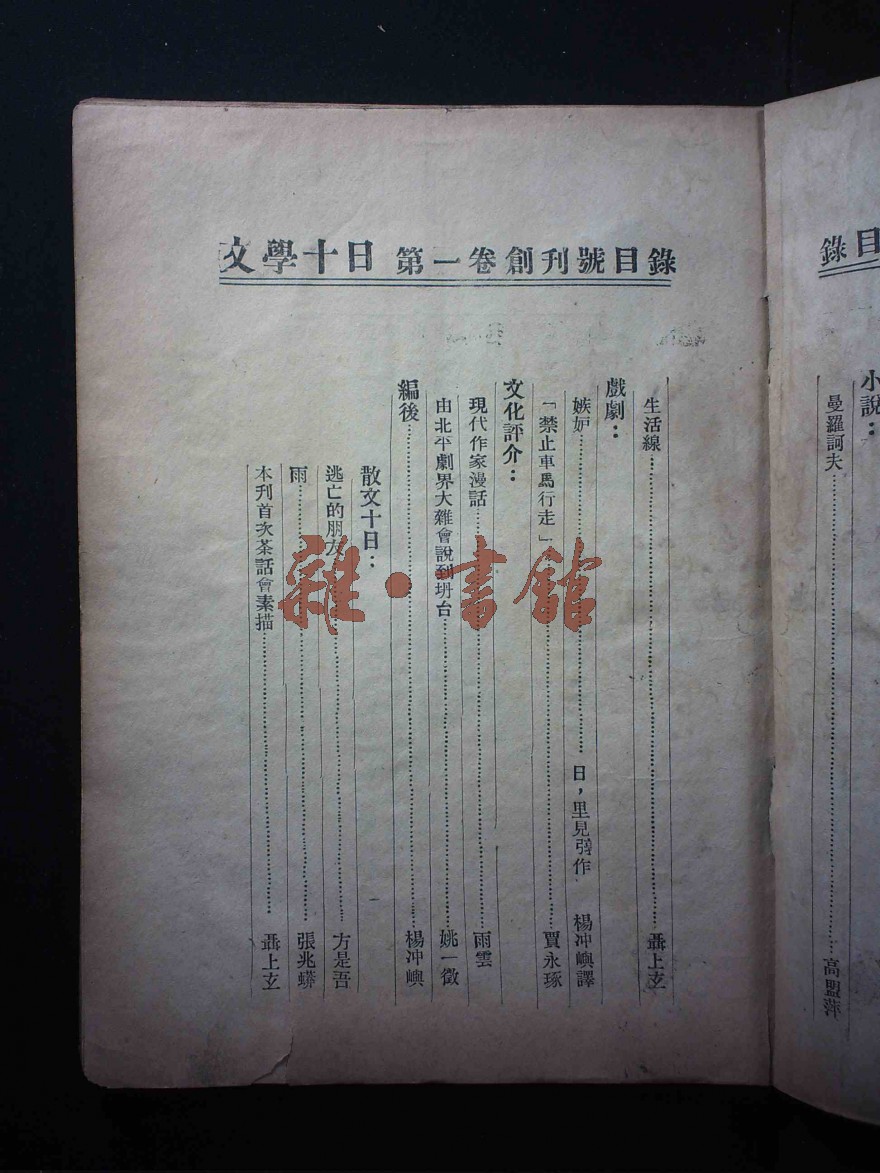 文學十日 第一卷創刊號目錄
生活線……聶上玄
戲劇：
嫉妒……日，里見弴作 楊冲嶼譯
「禁止車馬行走」……賈永琢
文化評介：
現代作家漫話……雨雲
由北平劇界大雜會說到坍台……姚一徵
編後……楊冲嶼
散文十日：
逃亡的朋友……方是吾
雨……張兆蟒
本刊首次茶話會素描……聶上玄
雜·書館
錄目
小說：
曼羅訶夫……高盟萍